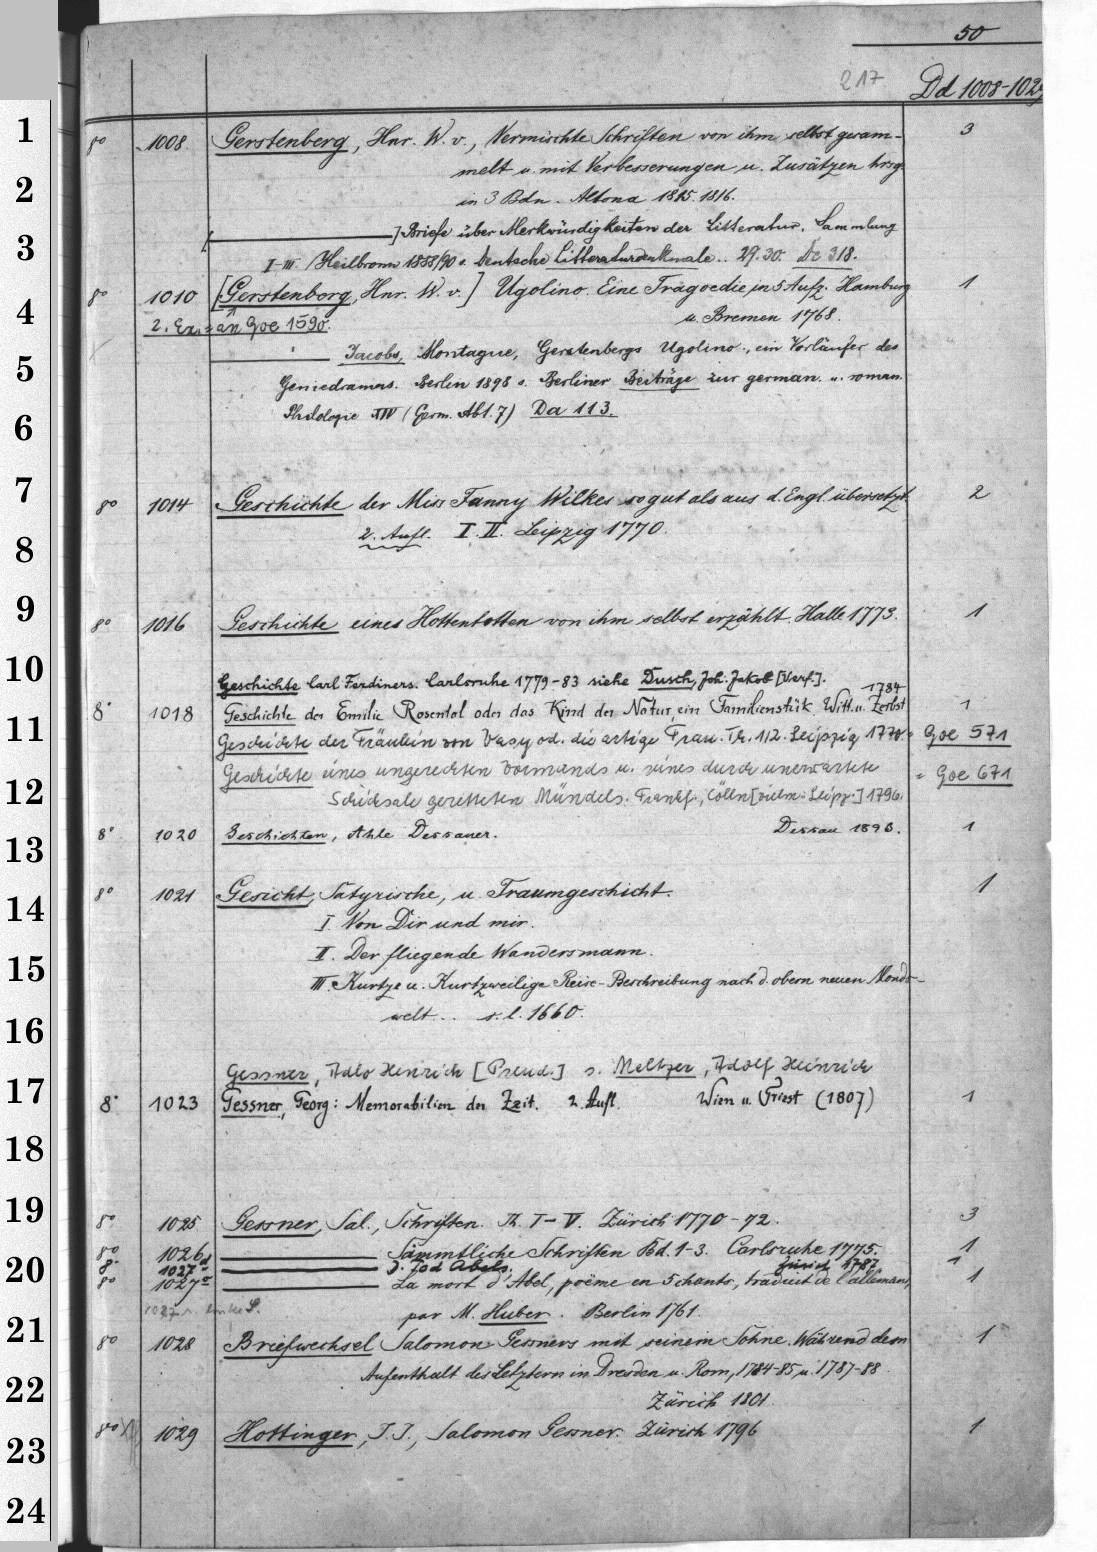 50
217 Dd 1008-1029
8° 1008 Gerstenberg, Hnr. W. v., Vermischte Schriften von ihm selbst gesam- 3
melt u. mit Verbesserungen u. Zusätzen hrsg.
in 3 Bdn. Altona 1815. 1816.
[ ] Briefe über Merkwürdigkeiten der Litteratur. Sammlung
I-III Heilbronn 1888/90 s. Deutsche Litteraturdenkmale.. 29.30. De 318.
8° 1010 [Gerstenberg, Hnr. W. v.] Ugolino. Eine Tragoedie, in 5 Aufz. Hamburg 1
2. Ex. = an Goe 1590. u. Bremen 1768.
Jacobs, Montague, Gerstenbergs Ugolino, ein Vorläufer des
Geniedramas. Berlin 1898 s. Berliner Beiträge zur german. u. roman.
Philologie XIV (Germ. Abt. 7) Da 113.
8° 1014 Geschichte der Miss Fanny Wilkes so gut als aus d. Engl. übersetzt 2
2. Aufl. I. II. Leipzig 1770.
8° 1016 Geschichte eines Hottentotten von ihm selbst erzählt. Halle 1773. 1
Geschichte Carl Ferdiners. Carlsruhe 1779-83 siehe Dusch, Joh. Jakob [Verf.].
1784
8° 1018 Geschichte der Emilie Rosental oder das Kind der Natur, ein Familienstük. Witt. u. Zerbst 1
Geschichte der Fräulein von Vasy od. die artige Frau. Th. 1/2. Leipzig 1770. = Goe 571
Geschichte eines ungerechten Vormunds u. eines durch unerwartete = Goe 671
Schicksale geretteten Mündels. Frankf., Cölln [vielm.: Leipz.] 1796.
8° 1020 Geschichten, Ahle Dessauer. Dessau 1893. 1
8° 1021 Gesicht, Satyrische, u. Traumgeschicht. 1
I Von Dir und mir.
II. Der fliegende Wandersmann.
III. Kurtze u. Kurtzweilige Reise-Beschreibung nach d. obern neuen Monds-
welt .. s. l. 1660.
Gessner, Adlo Henrich [Pseud.] s. Meltzer, Adolf Heinrich
8° 1023 Gessner, Georg: Memorabilien der Zeit. 2. Aufl. Wien u. Triest (1807) 1
8° 1025 Gessner, Sal., Schriften. Th. I-V. Zürich 1770-72. 3
8° 1026d Sämmtliche Schriften Bd. 1-3. Carlsruhe 1775. 1
8° 1027 D. Tod Abels. Zürich 1787 1
8° 1027a La mort d'Abel, poëme en 5 chants, traduit de l'alleman, 1
par M. Huber. Berlin 1761.
8° 1028 Briefwechsel Salomon Gessners mit seinem Sohne. Während dem 1
Aufenthalt des Letztern in Dresden u. Rom, 1784-85 u. 1787-88.
Zürich 1801.
8° 1029 Hottinger, J. J., Salomon Gessner. Zürich 1796 1
1
2
3
4
5
6
7
8
9
10
11
12
13
14
15
16
17
18
19
20
21
22
23
24